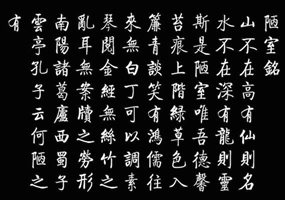 陋室銘
山不在高有仙則名
水不在深有龍則靈
斯是陋室唯吾德馨
苔痕上階綠草色入
簾青談笑有鴻儒往
來無白丁可以調素
琴閱金經無絲竹之
亂耳無案牘之勞形
南陽諸葛廬西蜀子
雲亭孔子云何陋之
有